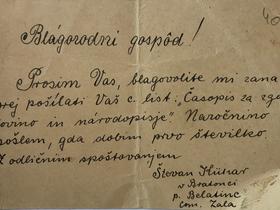 40
Blágorodni gospôd!
Prosim Vas, blagovolite mi zana
prej pošilati Vaš c. list: „Časopis za zgo
dovino in národopisje". Naročnino
pošlem, gda dobim prvo številko
Z odličnim spoštovanjem
Števan Kühar
v Bratonci
p. Belatinc
Com. Zala